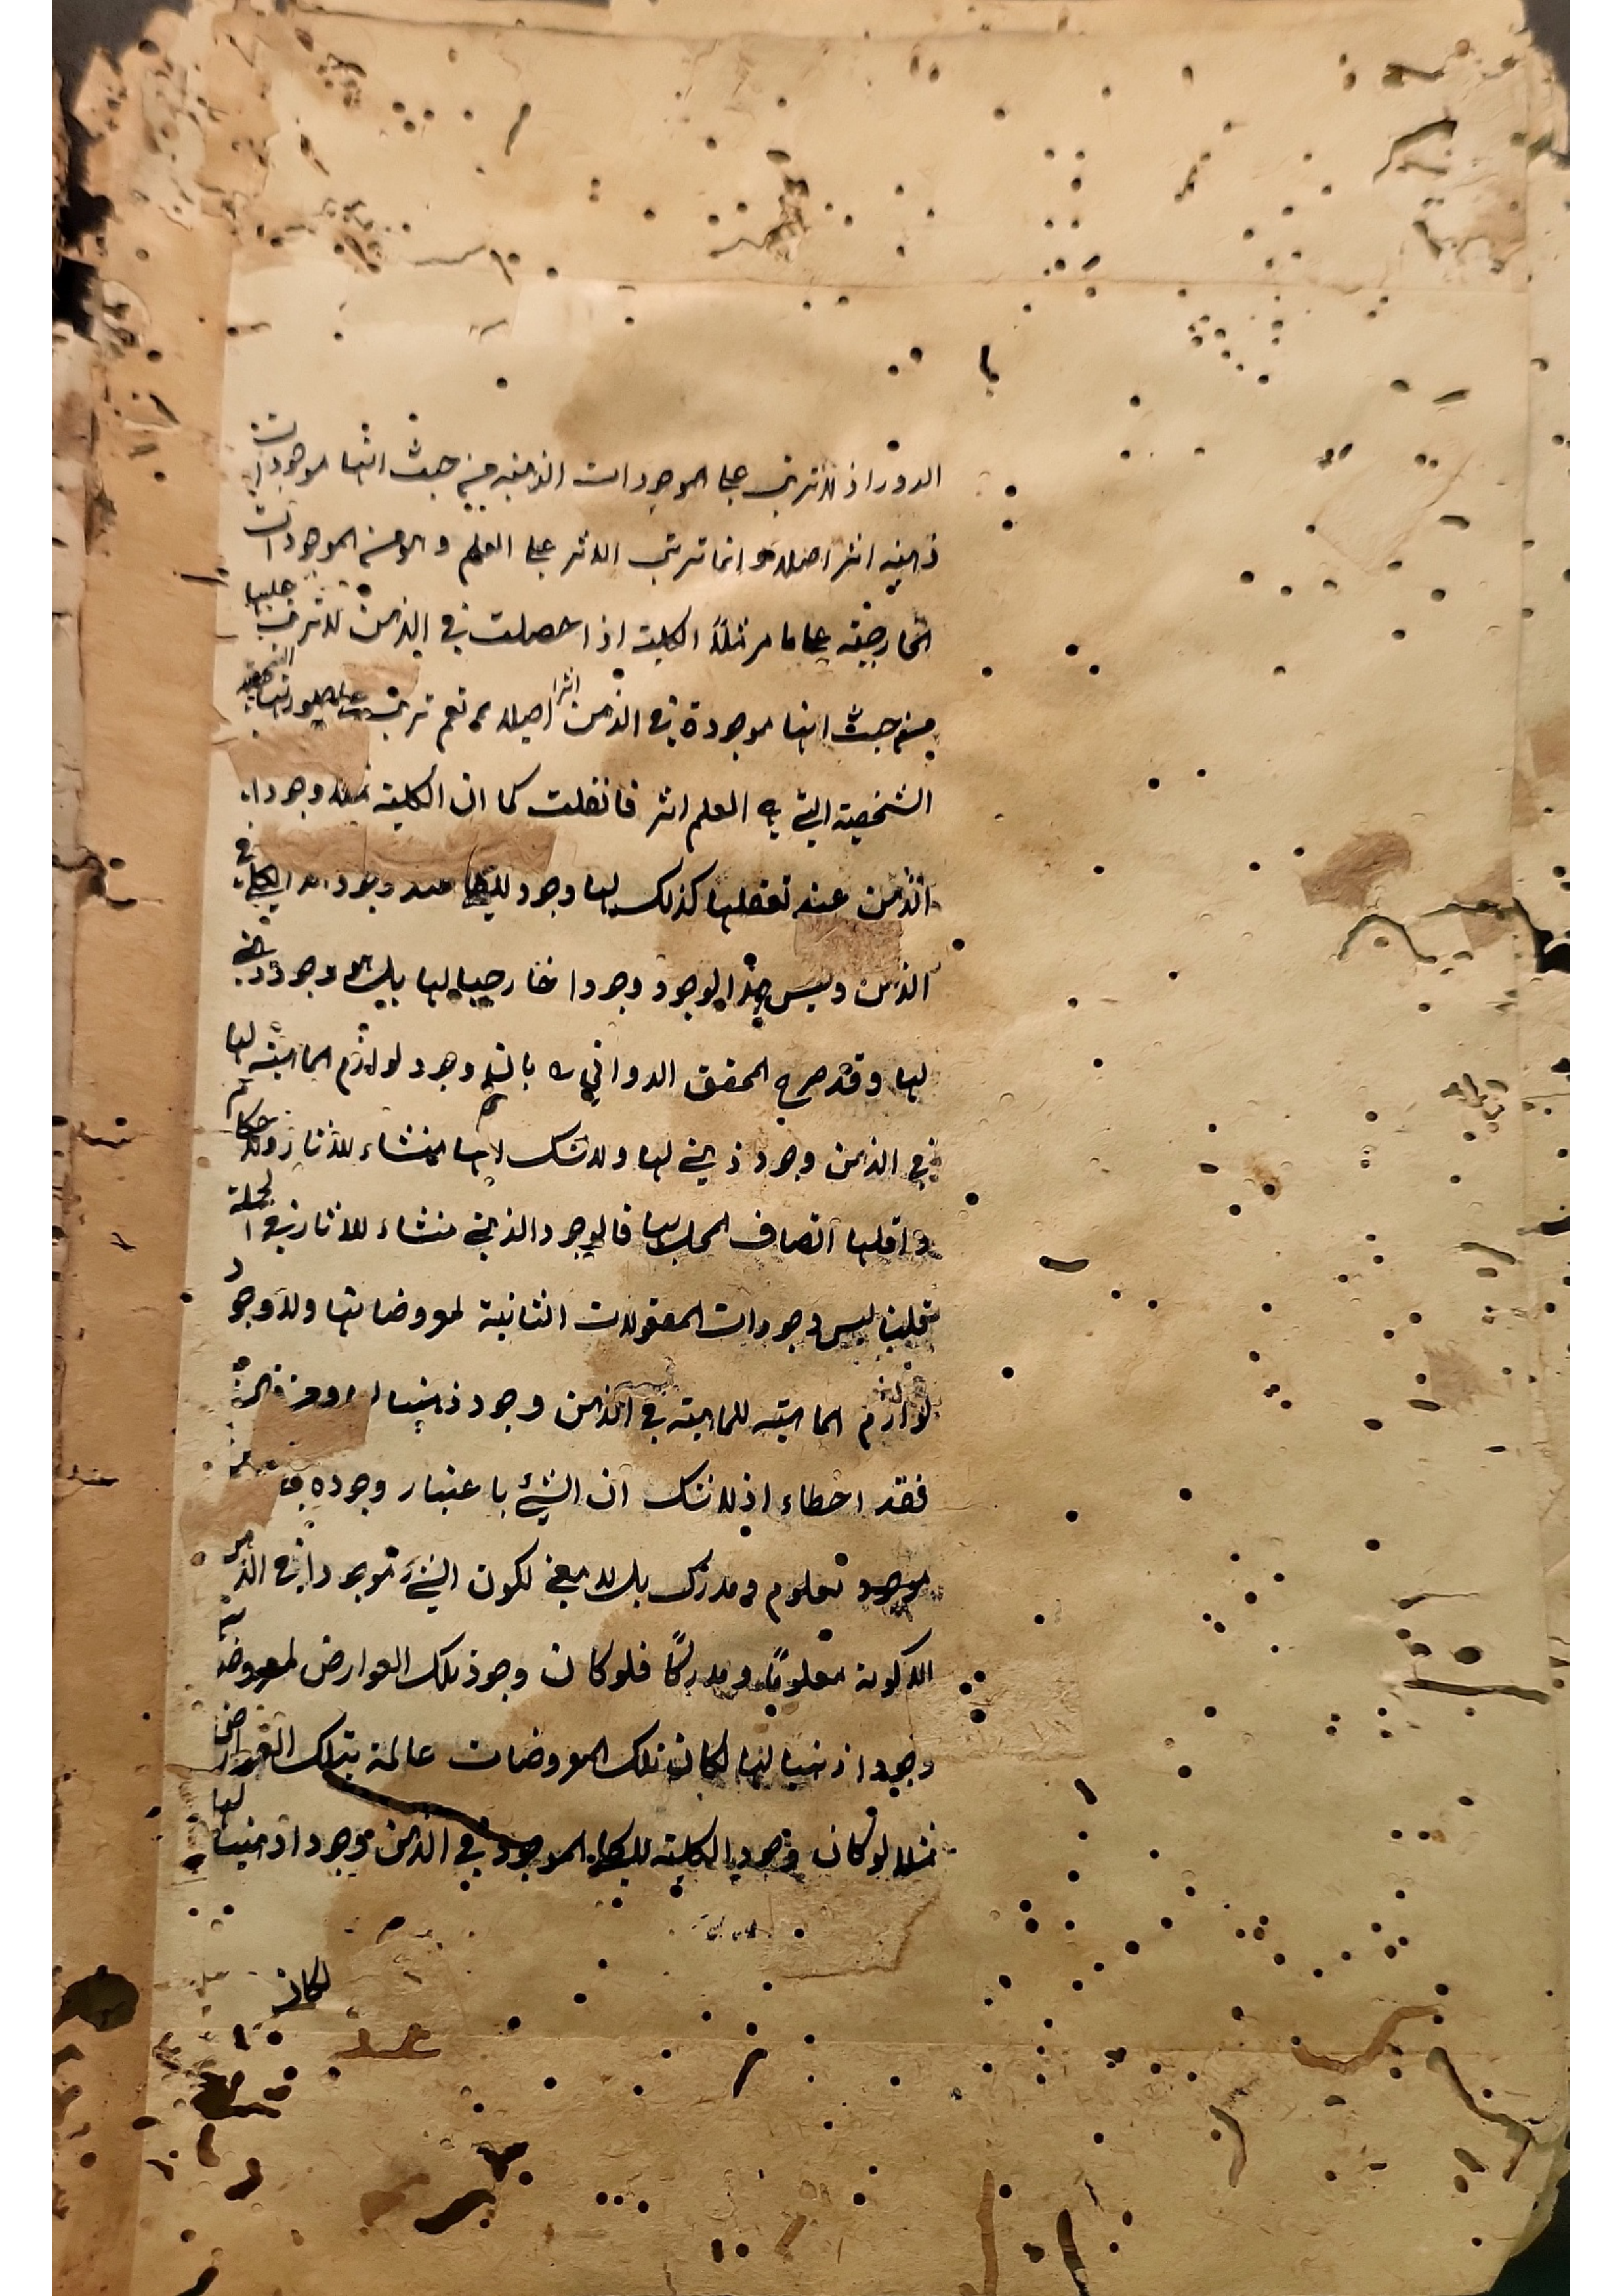 الدور اذ لا يترتب على الموجودات الذهنية من حيث انها موجودات
ذهنية اثر اصلا و انما ترتب الاثر على العلم و هو من الموجودات
الخارجية على ما مر مثلا الكلية اذا حصلت في الذهن لا يترتب عليها
من حيث انها موجودة في الذهن اثر اصلا نعم ترتب على صورتها
الشخصية التي هي العلم اثر فان قلت كما ان الكلية لها وجودا
الذهن عند تعقلها كذلك لها وجود للكلي عند وجود الكلي في
الذهن وليس هذا الوجود وجودا خارجيا لها بل هو وجود ذهني
لها وقد صرح المحقق الدواني ره بان وجود لوازم الماهية لها
في الذهن وجود ذهني لها ولا شك انها منشاء للآثار والاحكام
و اقلها اتصاف المحل بها فالوجود الذهني منشاء للآثار في الجملة
قلنا ليس وجودات المعقولات الثانية لمعروضاتها ولا وجود
لوازم الماهية للماهية في الذهن وجود ذهنيا
فقد اخطاء اذ لا شك ان الشيئ باعتبار وجوده
موجود معلوم ومدرك بل لا معنى لكون الشيئ موجودا في الذهن
الا كونه معلوما و مدركا فلو كان وجود تلك العوارض لمعروضاتها
وجودا ذهنيا لها لكان تلك المعروضات عالمة بتلك العوارض
مثلا لو كان وجود الكلية للكلي الموجود في الذهن موجودا ذهنيا لها
لكان